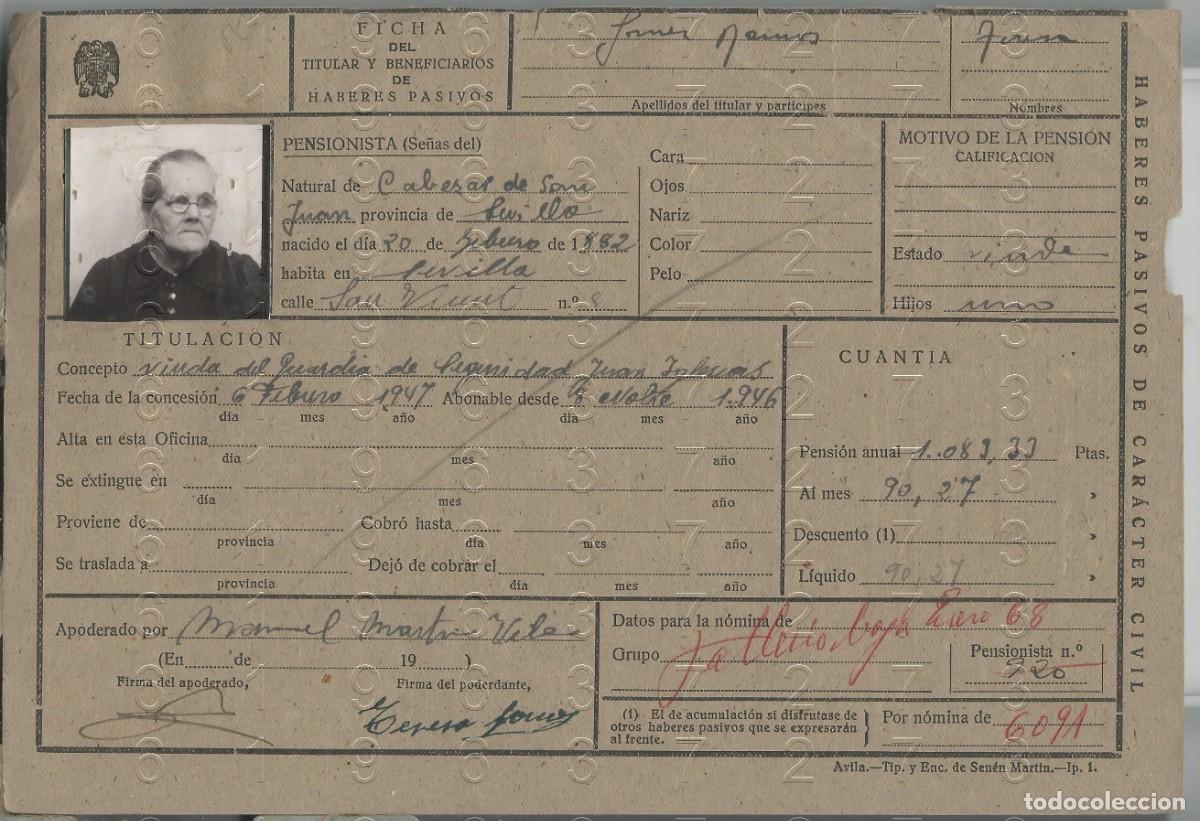 FICHA
DEL
TITULAR Y BENEFICIARIOS
DE
HABERES PASIVOS
Ramos
Apellidos del titular y participes
Teresa
Nombres
HABERES PASIVOS DE CARÁCTER CIVIL
PENSIONISTA (Señas del)
Natural de Cabezas de San
Juan provincia de Sevilla
nacido el día 20 de Febrero de 1882
habita en Sevilla
calle San Vicent n.º 8
Cara
Ojos
Nariz
Color
Pelo
MOTIVO DE LA PENSIÓN
CALIFICACION
Estado viuda
Hijos uno
TITULACION
Concepto viuda del Guardia de Seguridad Juan Iglesias
Fecha de la concesión 6 Febrero 1947 Abonable desde 8 Novbre 1.946
día mes año día mes año
Alta en esta Oficina
día mes año
Se extingue en
día mes año
Proviene de Cobró hasta
provincia día mes año
Se traslada a Dejó de cobrar el
provincia día mes año
CUANTIA
Pensión anual 1.083,33 Ptas.
Al mes 90,27 »
Descuento (1) »
Líquido 90,27 »
Apoderado por Manuel Martin Vela
(En de 19 )
Firma del apoderado, Firma del poderdante,
Teresa Gomez
Datos para la nómina de
Grupo
Fallecio baja Enero 68
Pensionista n.º
920
(1) El de acumulación si disfrutase de
otros haberes pasivos que se expresarán
al frente.
Por nómina de 6091
Avila.—Tip. y Enc. de Senén Martín.—Ip. 1.
todocoleccion